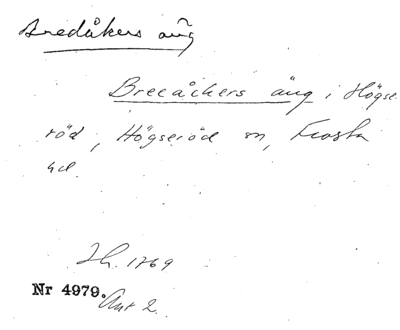 Bredåkers äng
Brecåckers äng i Högse
röd, Högseröd sn, Frosta
hd.
Jb. 1769
Nr 4979.
Akt 2.